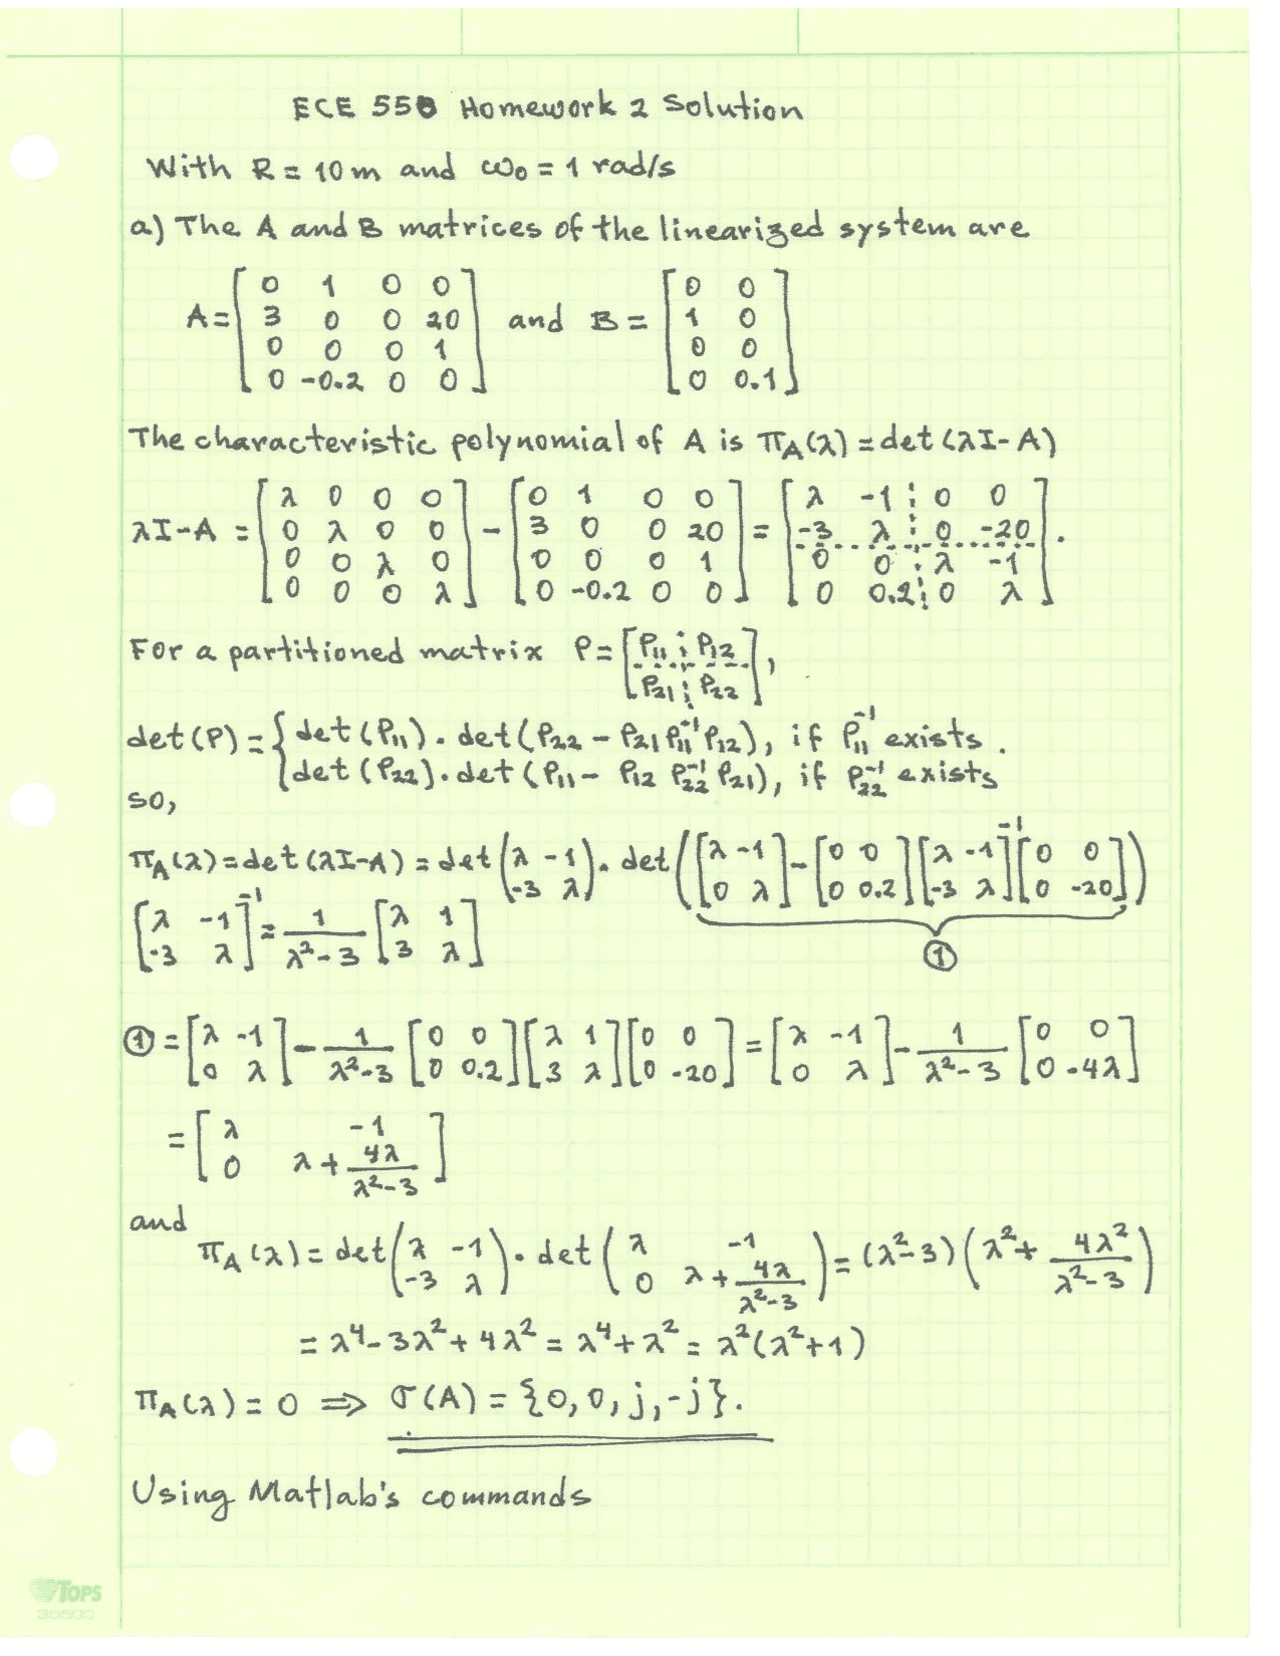 ECE 550 Homework 2 Solution
With R = 10 m and ω₀ = 1 rad/s
a) The A and B matrices of the linearized system are
A = [0 1 0 0; 3 0 0 20; 0 0 0 1; 0 -0.2 0 0] and B = [0 0; 1 0; 0 0; 0 0.1]
The characteristic polynomial of A is π_A(λ) = det(λI - A)
λI - A = [λ 0 0 0; 0 λ 0 0; 0 0 λ 0; 0 0 0 λ] - [0 1 0 0; 3 0 0 20; 0 0 0 1; 0 -0.2 0 0] = [λ -1 0 0; -3 λ 0 -20; 0 0 λ -1; 0 0.2 0 λ].
For a partitioned matrix P = [P₁₁ P₁₂; P₂₁ P₂₂],
det(P) = { det(P₁₁) · det(P₂₂ - P₂₁ P₁₁⁻¹ P₁₂), if P₁₁⁻¹ exists.
det(P₂₂) · det(P₁₁ - P₁₂ P₂₂⁻¹ P₂₁), if P₂₂⁻¹ exists
so,
π_A(λ) = det(λI-A) = det(λ -1; -3 λ) · det([λ -1; 0 λ] - [0 0; 0 0.2][λ -1; -3 λ]⁻¹[0 0; 0 -20])
[λ -1; -3 λ]⁻¹ = 1/(λ²-3) [λ 1; 3 λ]
①
① = [λ -1; 0 λ] - 1/(λ²-3) [0 0; 0 0.2][λ 1; 3 λ][0 0; 0 -20] = [λ -1; 0 λ] - 1/(λ²-3) [0 0; 0 -4λ]
= [λ -1; 0 λ + 4λ/(λ²-3)]
and
π_A(λ) = det(λ -1; -3 λ) · det(λ -1; 0 λ + 4λ/(λ²-3)) = (λ²-3)(λ² + 4λ²/(λ²-3))
= λ⁴ - 3λ² + 4λ² = λ⁴ + λ² = λ²(λ²+1)
π_A(λ) = 0 ⇒ σ(A) = {0, 0, j, -j}.
Using Matlab's commands
TOPS
35500